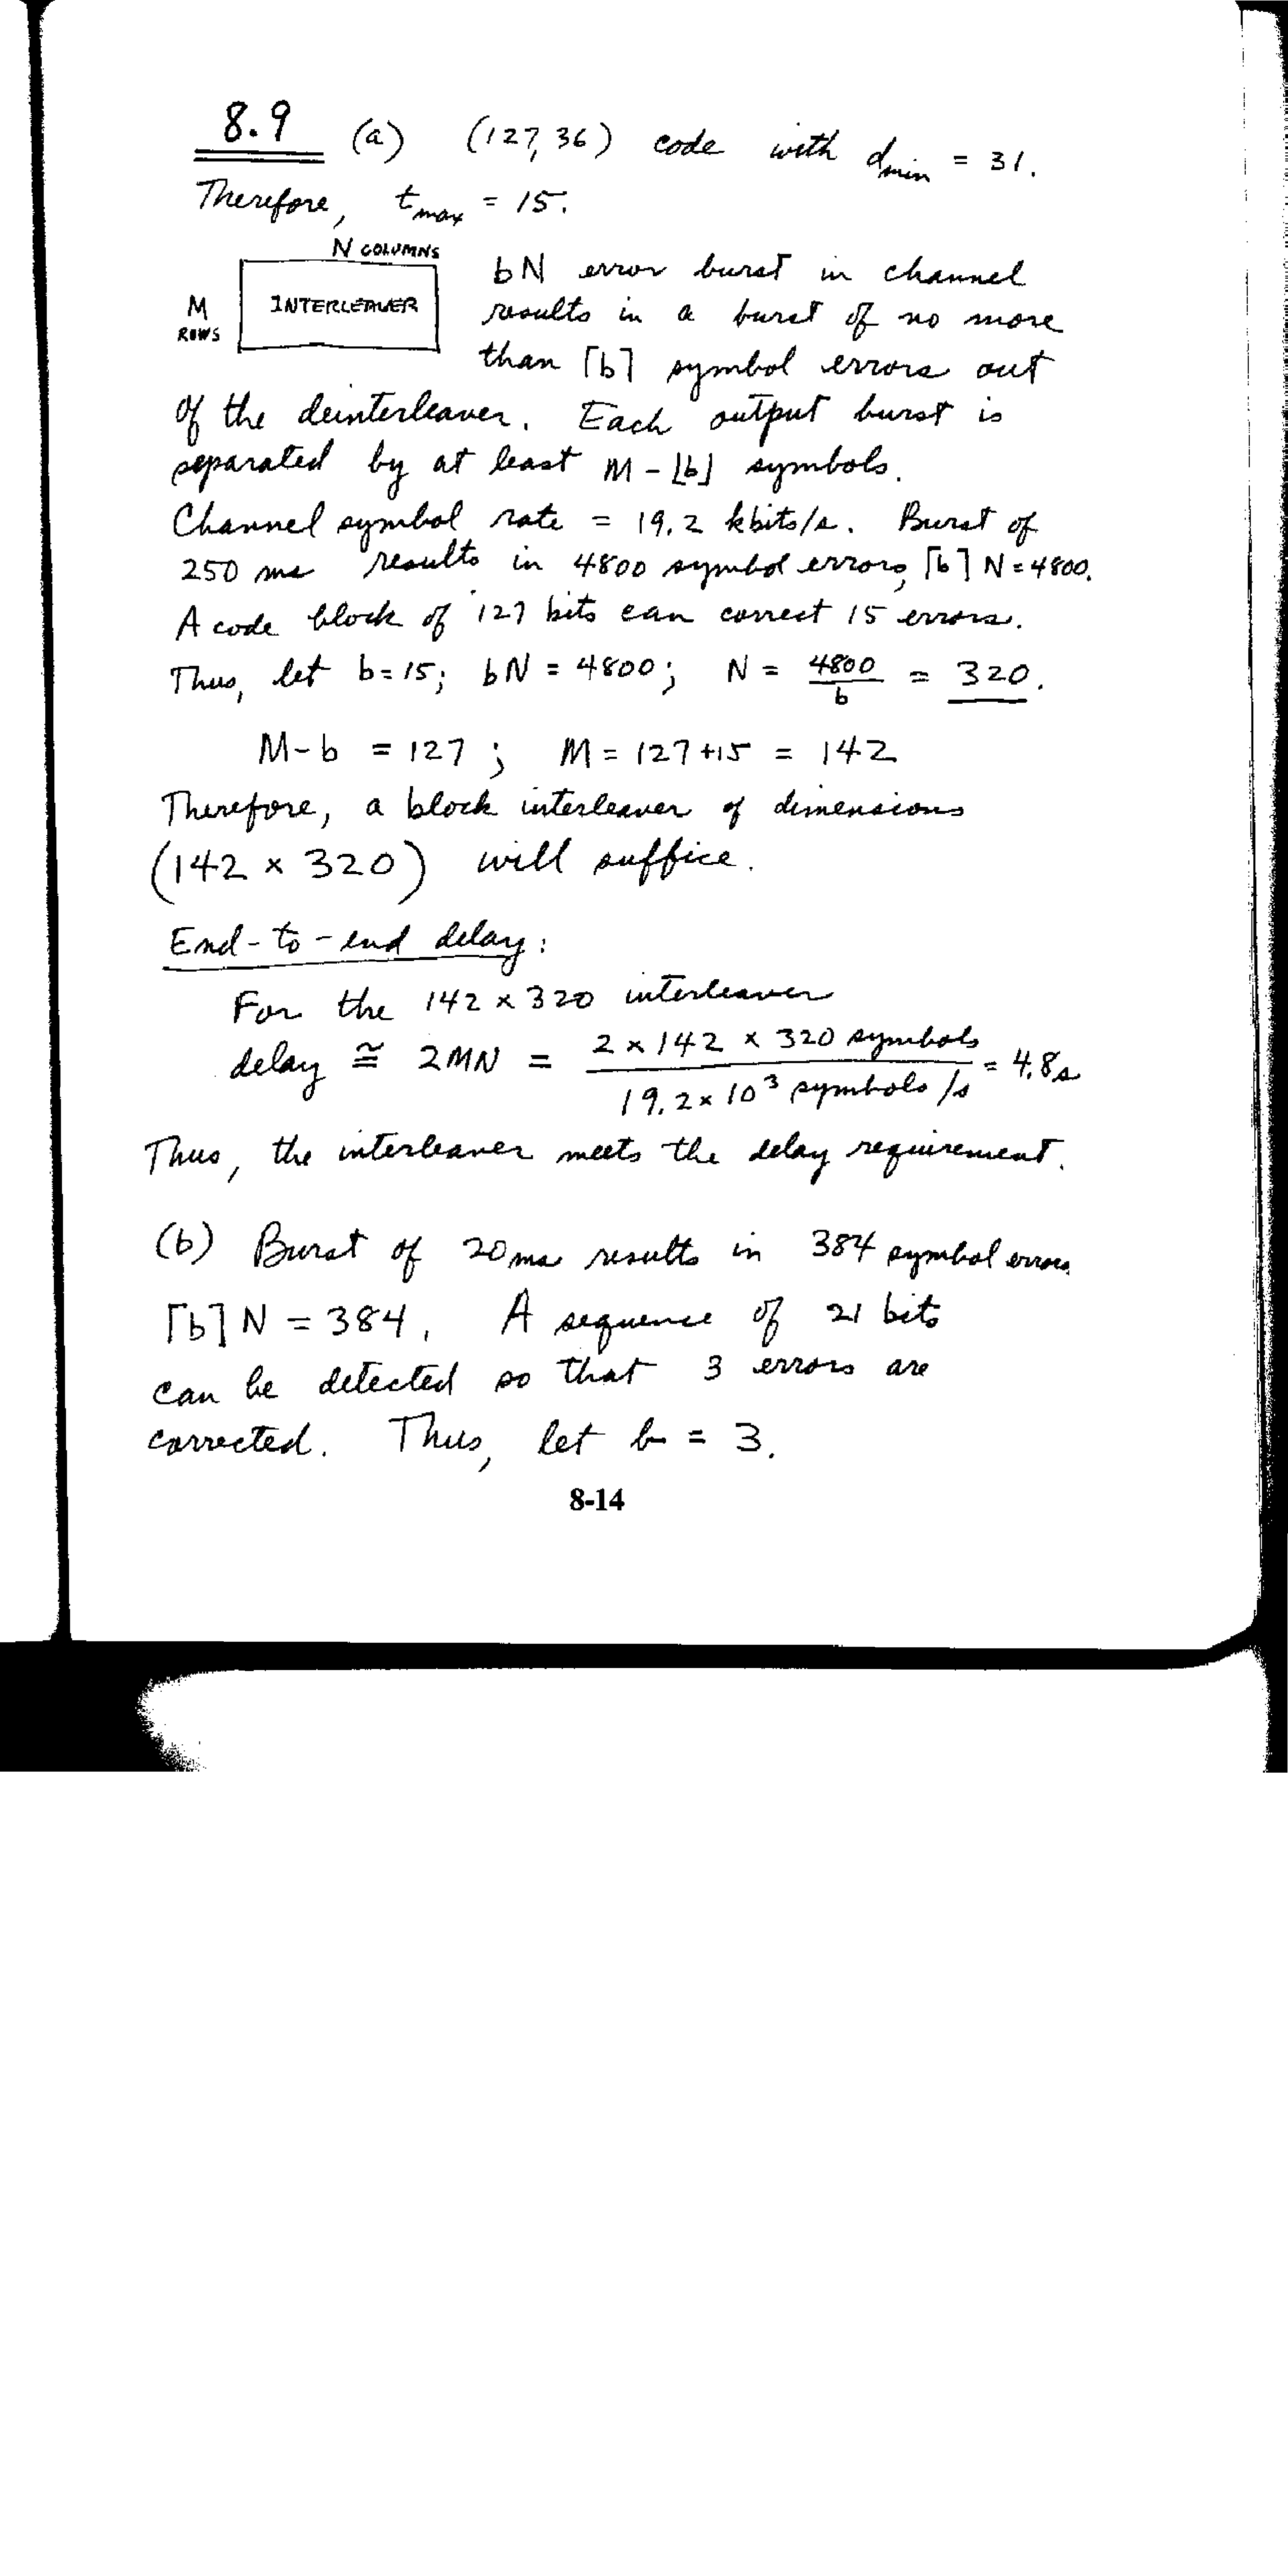 8.9 (a) (127, 36) code with dmin = 31.
Therefore, tmax = 15.
N COLUMNS
M
ROWS
INTERLEAVER
bN error burst in channel
results in a burst of no more
than ⌈b⌉ symbol errors out
of the deinterleaver. Each output burst is
separated by at least M - ⌊b⌋ symbols.
Channel symbol rate = 19.2 kbits/s. Burst of
250 ms results in 4800 symbol errors, ⌈b⌉ N = 4800.
A code block of 127 bits can correct 15 errors.
Thus, let b = 15; bN = 4800; N = 4800/b = 320.
M - b = 127; M = 127 + 15 = 142
Therefore, a block interleaver of dimensions
(142 x 320) will suffice.
End-to-end delay:
For the 142 x 320 interleaver
delay ≅ 2MN = 2 x 142 x 320 symbols / 19.2 x 10³ symbols/s = 4.8 s
Thus, the interleaver meets the delay requirement.
(b) Burst of 20 ms results in 384 symbol errors.
⌈b⌉ N = 384. A sequence of 21 bits
can be detected so that 3 errors are
corrected. Thus, let b = 3.
8-14